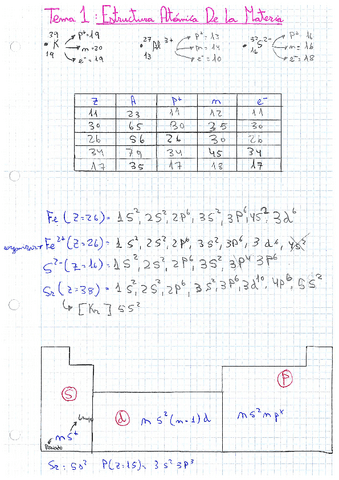 Tema 1: Estructura Atómica De la Materia
39 K 19 p⁺=19 n=20 e⁻=19
27 Al 3+ 13 p⁺=13 n=14 e⁻=10
32 S 2- 16 p⁺ 16 n=16 e⁻=18
Z A p⁺ n e⁻
11 23 11 12 11
30 65 30 35 30
26 56 26 30 26
34 79 34 45 34
17 35 17 18 17
Fe (Z=26) = 1s², 2s², 2p⁶, 3s², 3p⁶, 4s², 3d⁶
Fe²⁺ (Z=26) = 1s², 2s², 2p⁶, 3s², 3p⁶, 3d⁶, 4s²
S²⁻ (Z=16) = 1s², 2s², 2p⁶, 3s², 3p⁴ 3p⁶
Sr (Z=38) = 1s², 2s², 2p⁶, 3s², 3p⁶, 3d¹⁰, 4p⁶, 5s²
[Kr] 5s²
s
p
d
ns²(n-1)d
ns²np
Grupo
ns
Periodo
Sr = 5s² P(Z=15) = 3s² 3p³